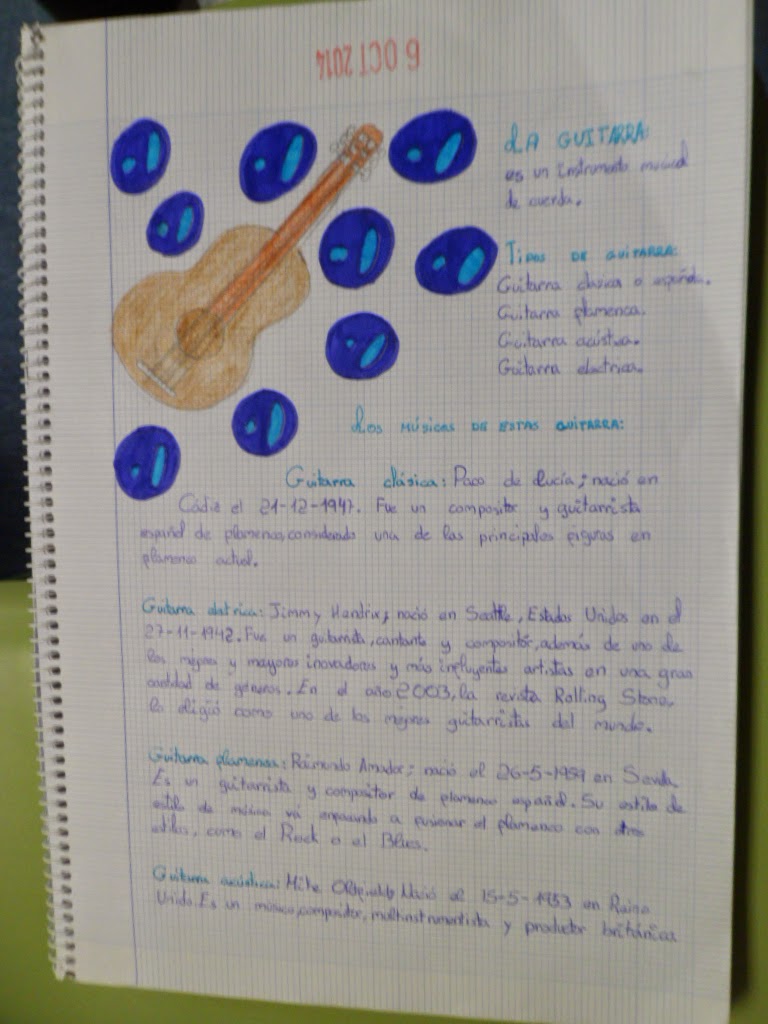 6 OCT 2014
LA GUITARRA:
es un instrumento musical
de cuerda.
Tipos de guitarra:
Guitarra clásica o española.
Guitarra flamenca.
Guitarra acústica.
Guitarra electrica.
Los músicas de estas guitarra:
Guitarra clásica: Paco de Lucía; nació en
Cádiz el 21-12-1947. Fue un compositor y guitarrista
español de flamenco, considerado una de las principales figuras en
flamenco actual.
Guitarra eletrica: Jimmy Hendrix; nació en Seattle, Estados Unidos en el
27-11-1942. Fue un guitarrista, cantante y compositór, además de uno de
los mejores y mayores inovadores y más influyentes artistas en una gran
cantidad de géneros. En el año 2003, la revista Rolling Stone,
lo eligió como uno de los mejores guitarristas del mundo.
Guitarra flamenca: Raimundo Amador; nació el 26-5-1959 en Sevilla.
Es un guitarrista y compositor de flamenco español. Su estilo de
estilo de música vá enfocando a fusionar el flamenco con otros
estilos, como el Rock o el Blues.
Guitarra acústica: Mike Nació el 15-5-1953 en Reino
Unido. Es un músico, compositor, multinstrumentista y productor británico